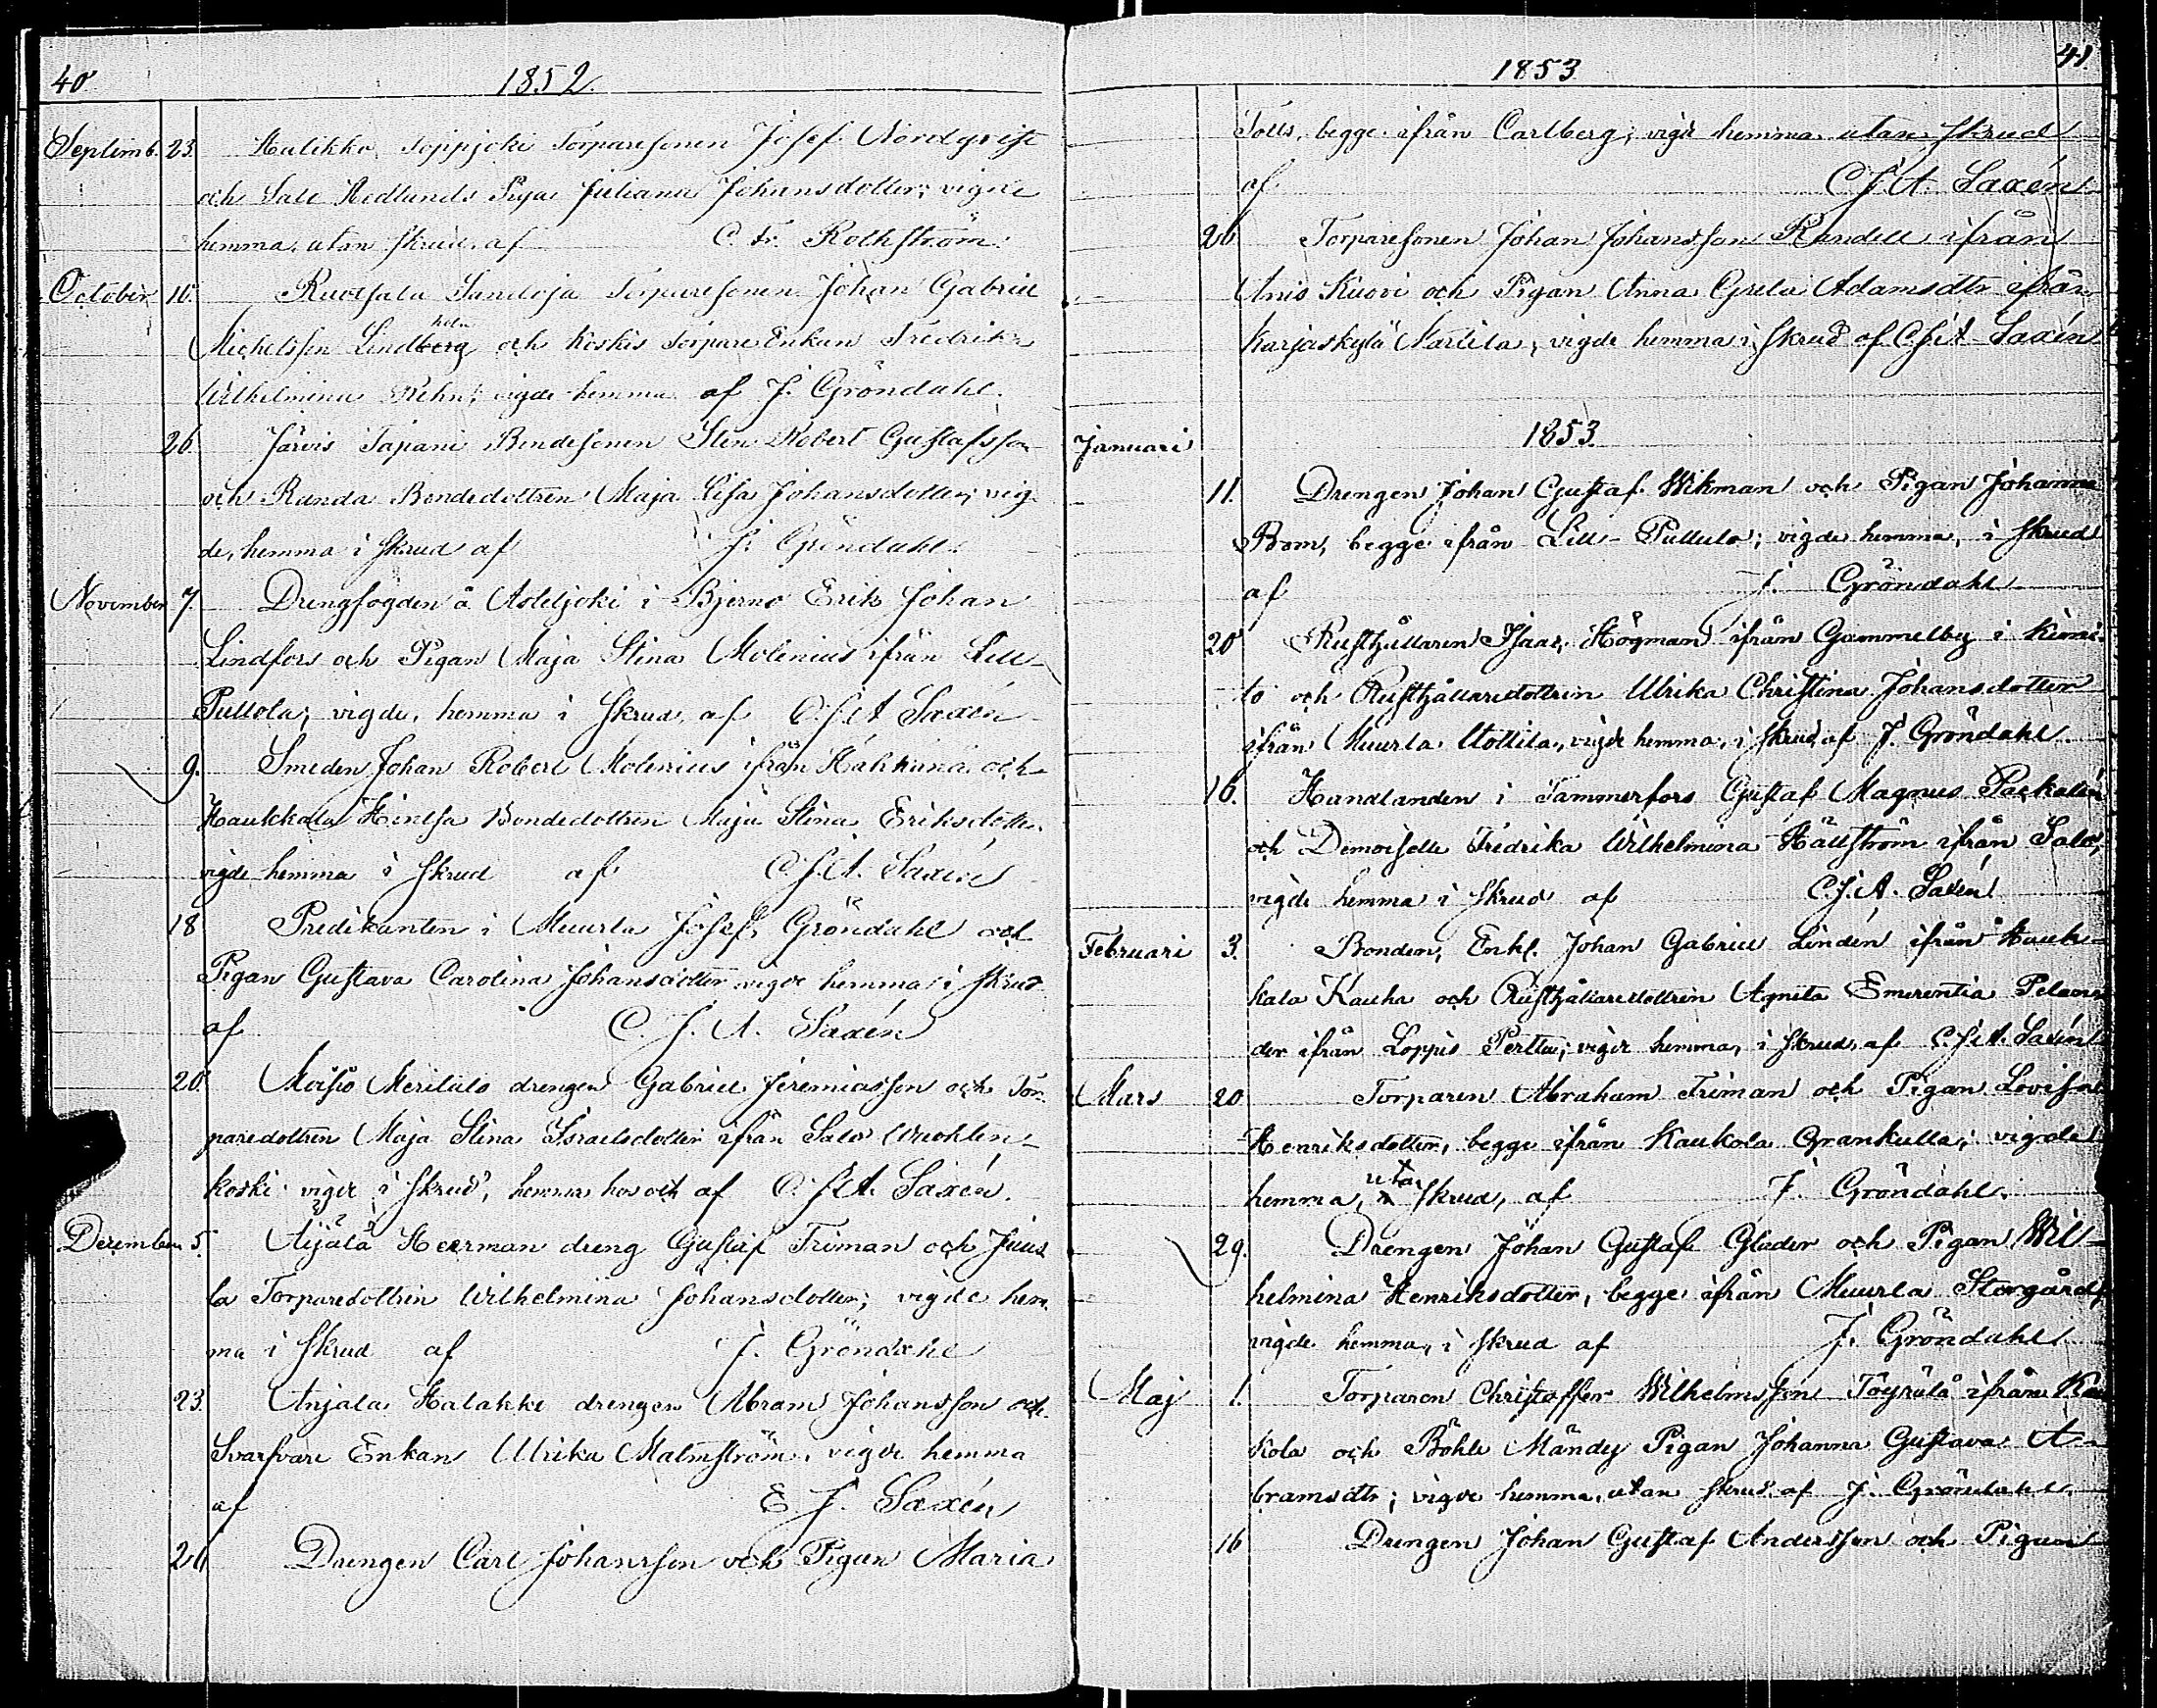 40. 1852.
Septemb. 23. Halikko, Toppjoki Torparesonen Josef Nordqvist
och Salo Hedlunds Piga Juliana Johansdotter; vigde
hemma, utan skrud, af C. Fr. Rothström.
October 10. Ruotsala Sandoja Torparesonen Johan Gabriel
holm
Michelsson Lindberg och Koskis TorpareEnkan Fredrika
Wilhelmina Rehn; vigde hemma af J. Gröndahl.
26. Järvis Tapani Bondesonen Sten Robert Gustafsson
och Randa Bondedottren Maja Lisa Johansdotter; vig-
de, hemma i skrud af J. Gröndahl.
November 7. Drengfogden å Adeljoki i Bjerno Erik Johan
Lindfors och Pigan Maja Stina Molenius ifrån Lill-
Pullola; vigde, hemma i skrud, af C.J.A. Saxén
9. Smeden Johan Robert Molenius ifrån Hakkina och
Haukkala Hintsa Bondedottren Maja Stina Eriksdotter
vigde hemma i skrud af C.J.A. Saxén
18 Predikanten i Muurla Josef Gröndahl och
Pigan Gustava Carolina Johansdotter vigde hemma i skrud
af C. J. A. Saxén
20. Moisio Meritalo drengen Gabriel Jeremiasson och Tor-
paredottren Maja Stina Israelsdotter ifrån Salo Wuohlen-
koski vigde i skrud, hemma hos och af C.J.A. Saxén.
December 5. Aijälä Heerman dreng Gustaf Friman och Juus
la Torparedottren Wilhelmina Johansdotter; vigde hem-
ma i skrud af J. Gröndahl
23. Anjala Halakke drengen Abram Johansson och
Svarfvare Enkan Ulrika Malmström, vigde hemma
af E J. Saxén
26 Drengen Carl Johansson och Pigan Maria
1853 41.
Tolls, begge ifrån Carlberg; vigde hemma utan skrud
af C.J.A. Saxén
26 Torparesonen Johan Johansson Randell ifrån
Anis Kuovi och Pigan Anna Greta Adamsdtr ifrån
Karjaskylä Martila, vigde hemma i skrud af C.J.A. Saxén
1853.
Januari
11. Drengen Johan Gustaf Wikman och Pigan Johanna
Bom, begge ifrån Lill-Pullola; vigde hemma, i skrud
af J. Gröndahl
20 Rusthållaren Isaac Högman ifrån Gammelby i Kimi-
to och Rusthållaredottren Ulrika Christina Johansdotter
ifrån Muurla Uotila, vigde hemma, i skrud, af J. Gröndahl.
16. Handlanden i Tammerfors Gustaf Magnus Packalén
och Demoiselle Fredrika Wilhelmina Hällström ifrån Salo,
vigde hemma i skrud af C.J.A. Saxén
Februari 3. Bonden, Enkl. Johan Gabriel Lindén ifrån Hauk-
kala Kauha och Rusthållaredottren Agneta Emerentia Pelan-
der ifrån Loppis Perttu; vigde hemma, i skrud, af C.J.A. Saxén
Mars 20 Torparen Abraham Friman och Pigan Lovisa
Henriksdotter, begge ifrån Kaukola Grankulla; vigde
utan
hemma, skrud, af J. Gröndahl.
29. Drengen Johan Gustaf Glader och Pigan Wil-
helmina Henriksdotter, begge ifrån Muurla Storgård,
vigde hemma, i skrud af J. Gröndahl
Maj 1. Torparen Christoffer Wilhelmsson Töyrälä ifrån Kau
kola och Böhle Mändy Pigan Johanna Gustava A-
bramsdtr; vigde hemma, utan skrud af J. Gröndahl
16 Drengen Johan Gustaf Andersson och Pigan